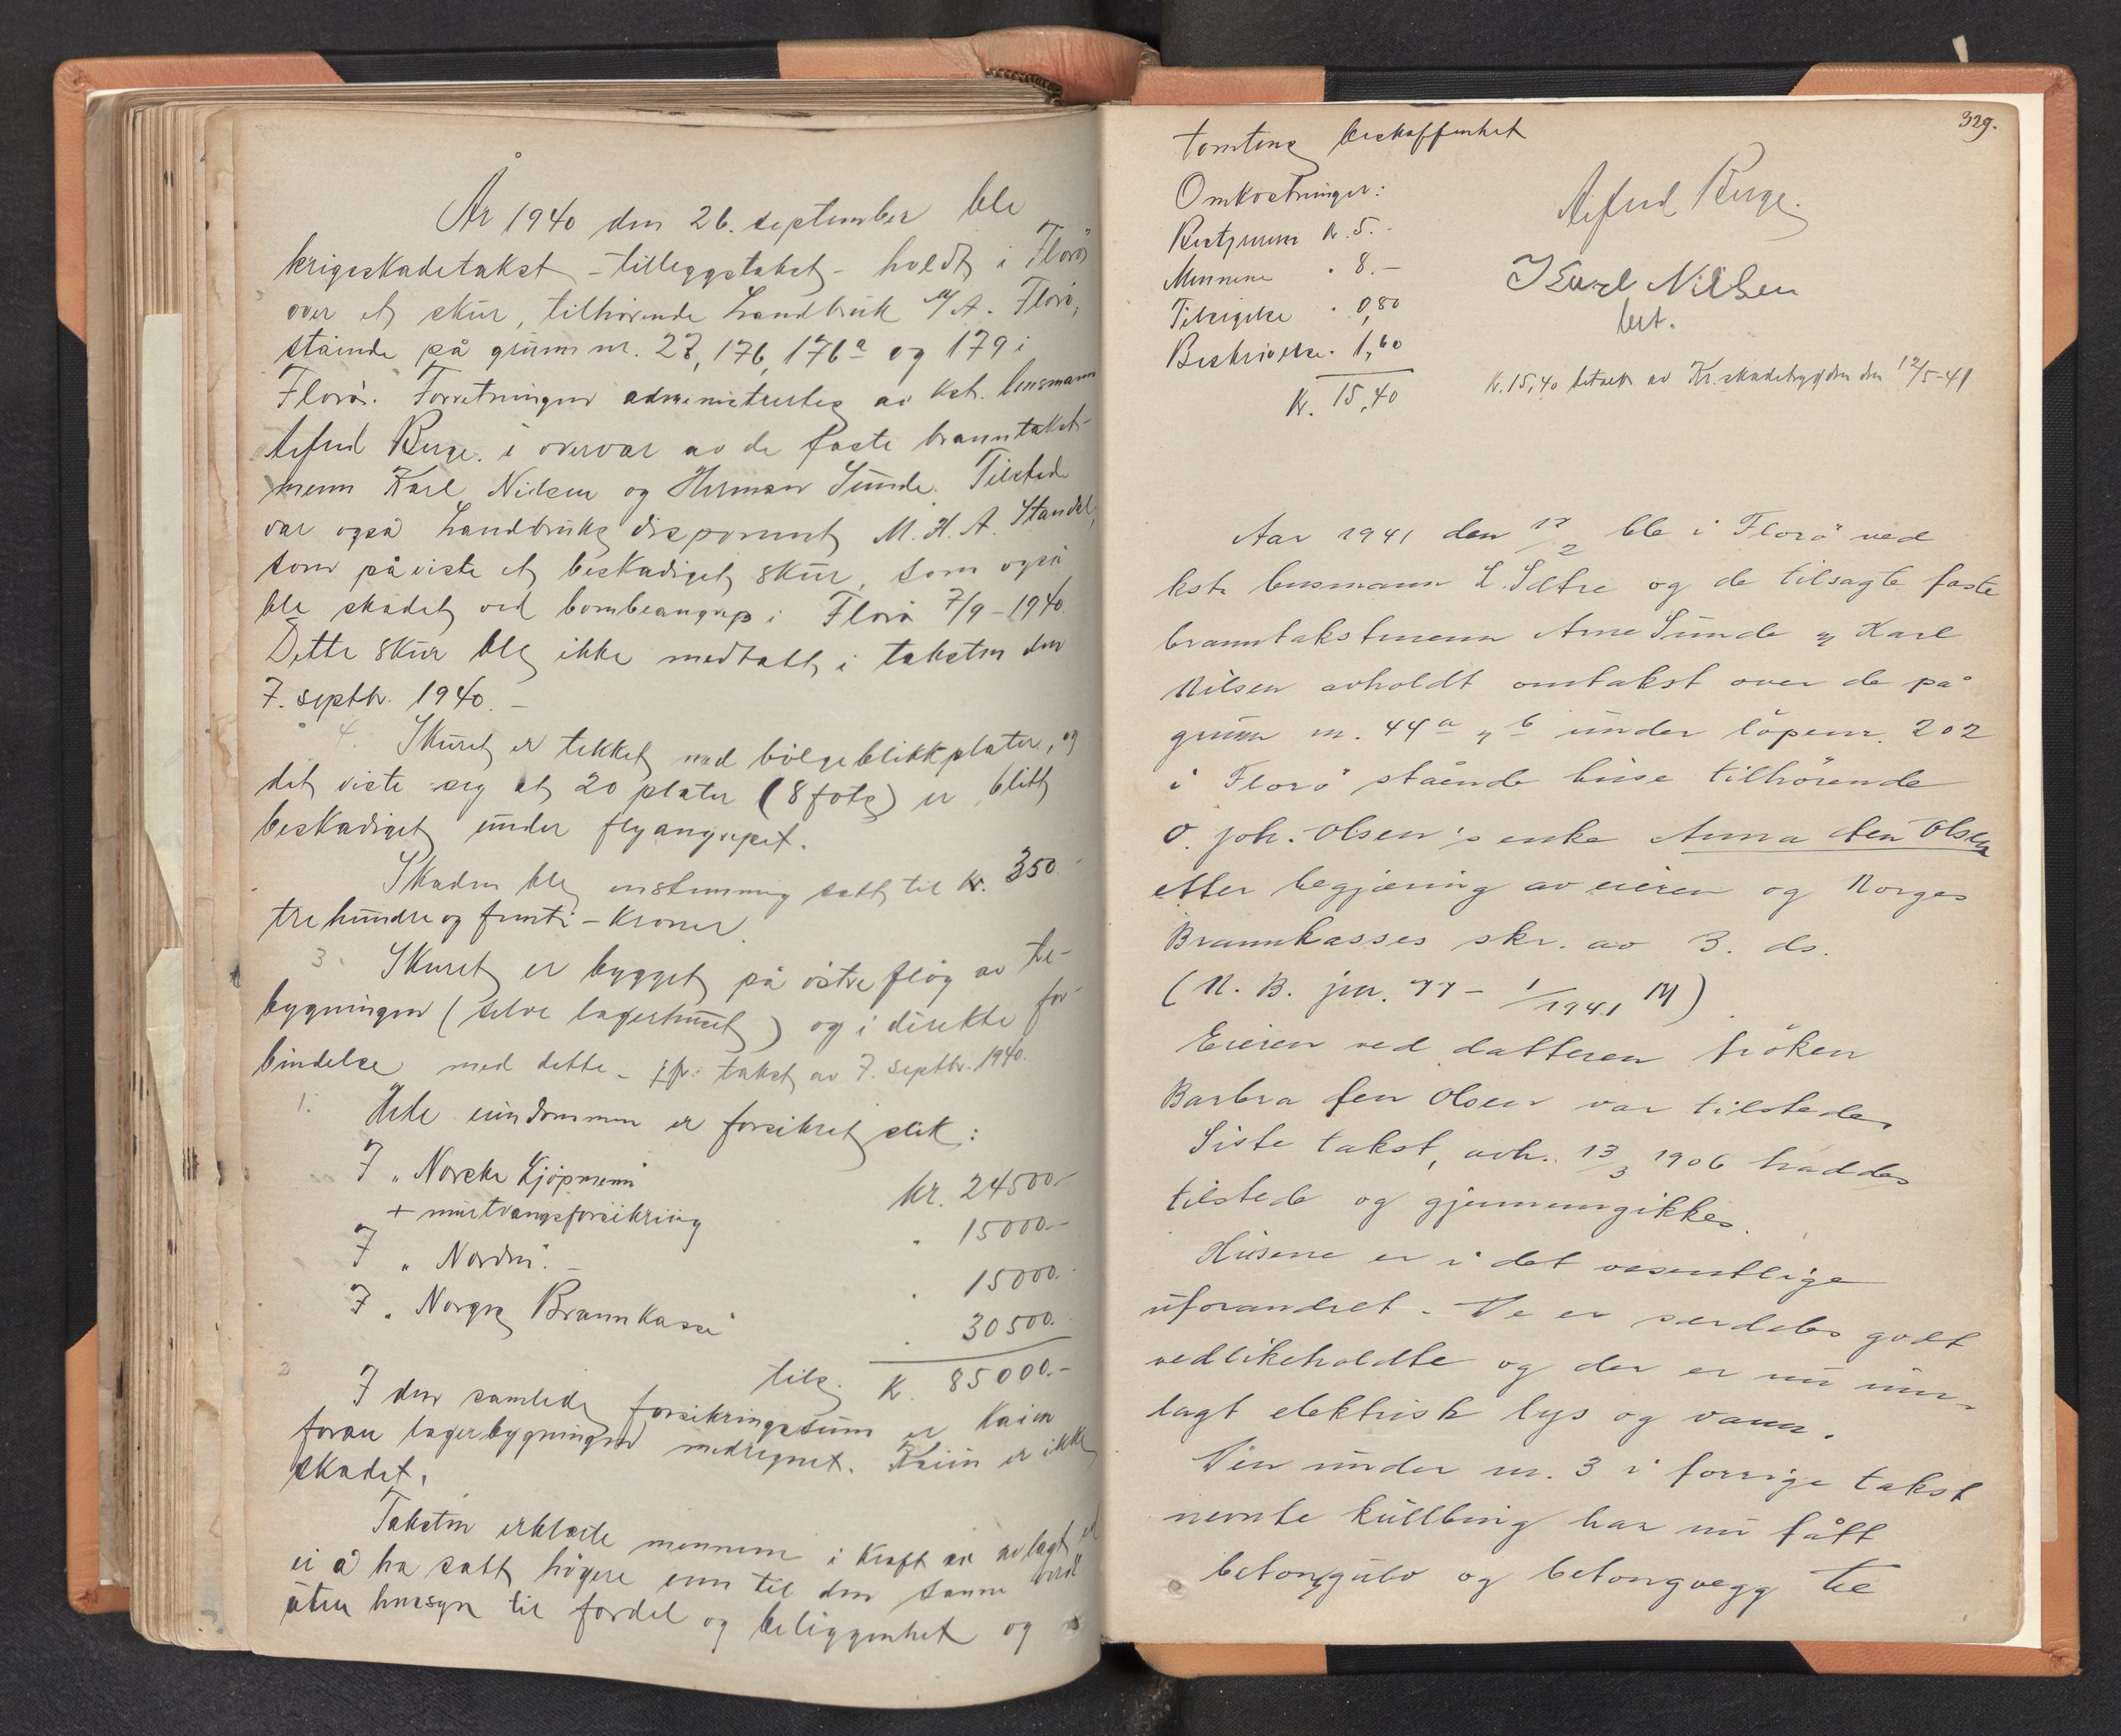 År 1940 den 26. september ble
krigsskadetakst - tilleggstakst - holdt i Florø
over et skur, tilhørende Landbruk A/A. Florø,
stående på grunn nr. 27, 176, 176a og 179 i
Florø. Forretningen administrertes av kst. lensmann
Alfred Berge i overvær av de faste branntakst-
menn Karl Nielsen og Herman Sunde. Tilstede
var også Landbruks disponent M. H. A. Standal,
som påviste et beskadiget skur, som også
ble skadet ved bombeangrep i Florø 7/9-1940.
Dette skur ble ikke medtatt i taksten den
7. septbr. 1940. -
4. Skuret er tekket med bølgeblikkplater, og
det viste seg at 20 plater (8 fots) er blitt
beskadiget under flyangrepet.
Skaden ble enstemmig satt til kr. 350
tre hundre og femti - kroner.
3. Skuret er bygget på østre fløy av be-
bygningen (selve lagerhuset) og i direkte for-
bindelse med dette - jfr. takst av 7. septbr. 1940.
1. Hele eiendommen er forsikret slik:
I "Norske Kjøpmenn" kr. 24500-
+ mertvangsforsikring " 15000-
I "Norden" - " 15000.
I "Norges Brannkasse" " 30500.
tils. kr. 85000.-
2 I den samlede forsikringssum er kaien
foran lagerbygningen medregnet. Kaien er ikke
skadet.
Taksten erklærte mennene i kraft av avlagt ed
ei å ha satt høgere enn til den sanne verdi
uten hensyn til fordel og beliggenhet og
329.
tomtens beskaffenhet
Omkostninger:
Bestyreren kr. 5.-
Mennene " 8.-
Tilsigelse " 0,80
Beskrivelse " 1,60
Kr. 15,40
Alfred Berge.
Karl Nilsen
best.
Kr. 15,40 betalt av Kr.skadetrygden den 12/5-41
Aar 1941 den 17/2 ble i Florö ved
kst. lensmann L. Sætre og de tilsagte faste
branntakstmenn Arne Sunde og Karl
Nilsen avholdt omtakst over de på
grunn nr. 44a og b under löpenr. 202
i Florö stående huse tilhörende
O. Joh. Olsen's enke Anna Fen Olsen
etter begjæring av eieren og Norges
Brannkasses skr. av 3. ds.
(N. B. jnr. 77 - 1/1941 M)
Eieren ved datteren fröken
Barbra Fen Olsen var tilstede.
Siste takst, avh. 13/3 1906 haddes
tilstede og gjennemgikkes.
Husene er i det vesentlige
uforandret. De er særdeles godt
vedlikeholdte og der er nu inn-
lagt elektrisk lys og vann.
Den under nr. 3 i forrige takst
nevnte kullbing har nu fått
betonggulv og betongvegg til